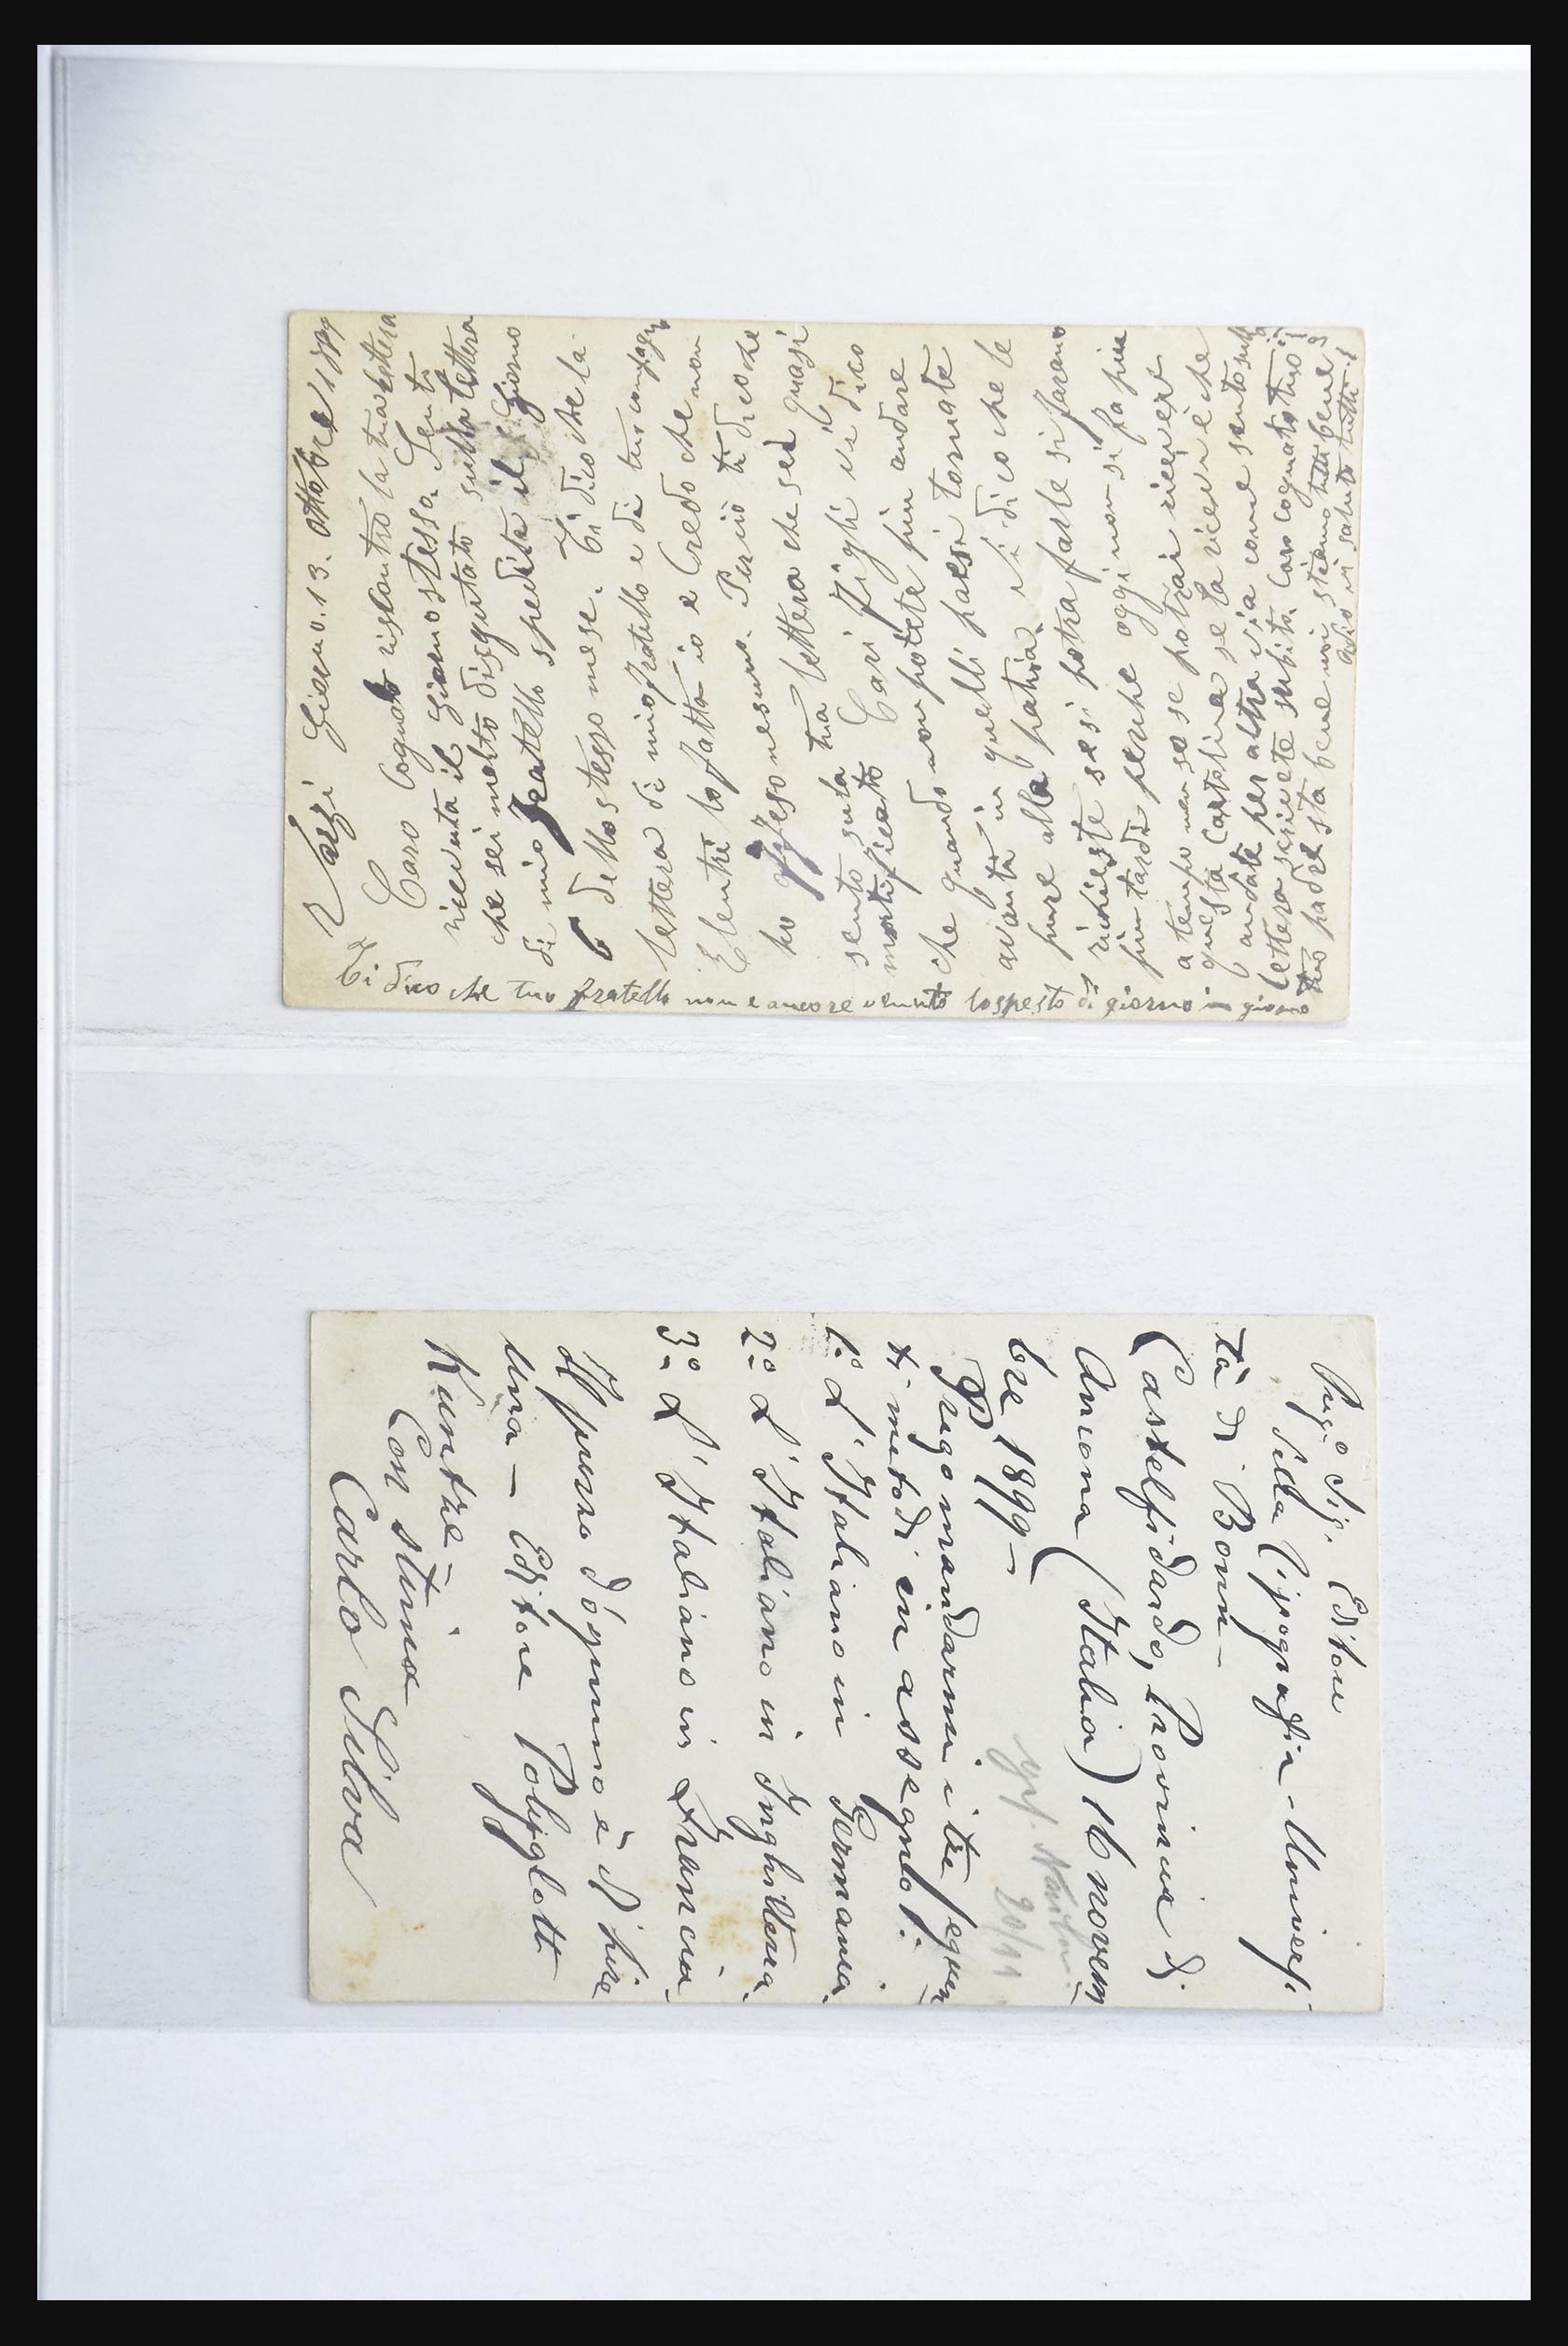 Giorno. 13. Ottobre
Caro Cognato riscontro la tua lettera
ricevuta il giorno stesso. Senti
che sei molto disgustato sulla lettera
di mio fratello spedita il giorno
6 dello stesso mese. Ti dico che la
lettera di mio fratello e di tuo
lo fatta io e Credo che non
ho offeso nesuno. Perciò ti dico che
sento sula tua lettera che sei quasi
mortificato Cari figli vi dico
che quando non potete piu andare
avanti in quelli paesi tornate
pure alla patria vi dico che le
richieste se si potra farle si faranno
piu tardi perche oggi non si fa piu
a tempo non so se potrai ricevere
questa Cartolina se la riceve e che
andate per altra via come sento sulla
lettera scriete subito Caro cognato tuo
tuo padre sta bene noi stiamo tutti bene
Adio vi saluto tutti
Ti dico che tuo fratello non e ancore venuto lo spesto di giorno in giorno
Preg.o Sig. Editore
della Tipografia - Universi-
tà di Bonn -
Castelfidardo, Provincia di
Ancona (Italia) 16 novem
bre 1899 -
Prego mandarmi i tre seguen
ti metodi in assegno:
1.o L'Italiano in Germania.
2.o L'Italiano in Inghilterra.
3.o L'Italiano in Francia.
Il prezzo d'ognuno è di lire
Una - Editore Poliglott
Kuntze
Con stima
Carlo Silva
20/11